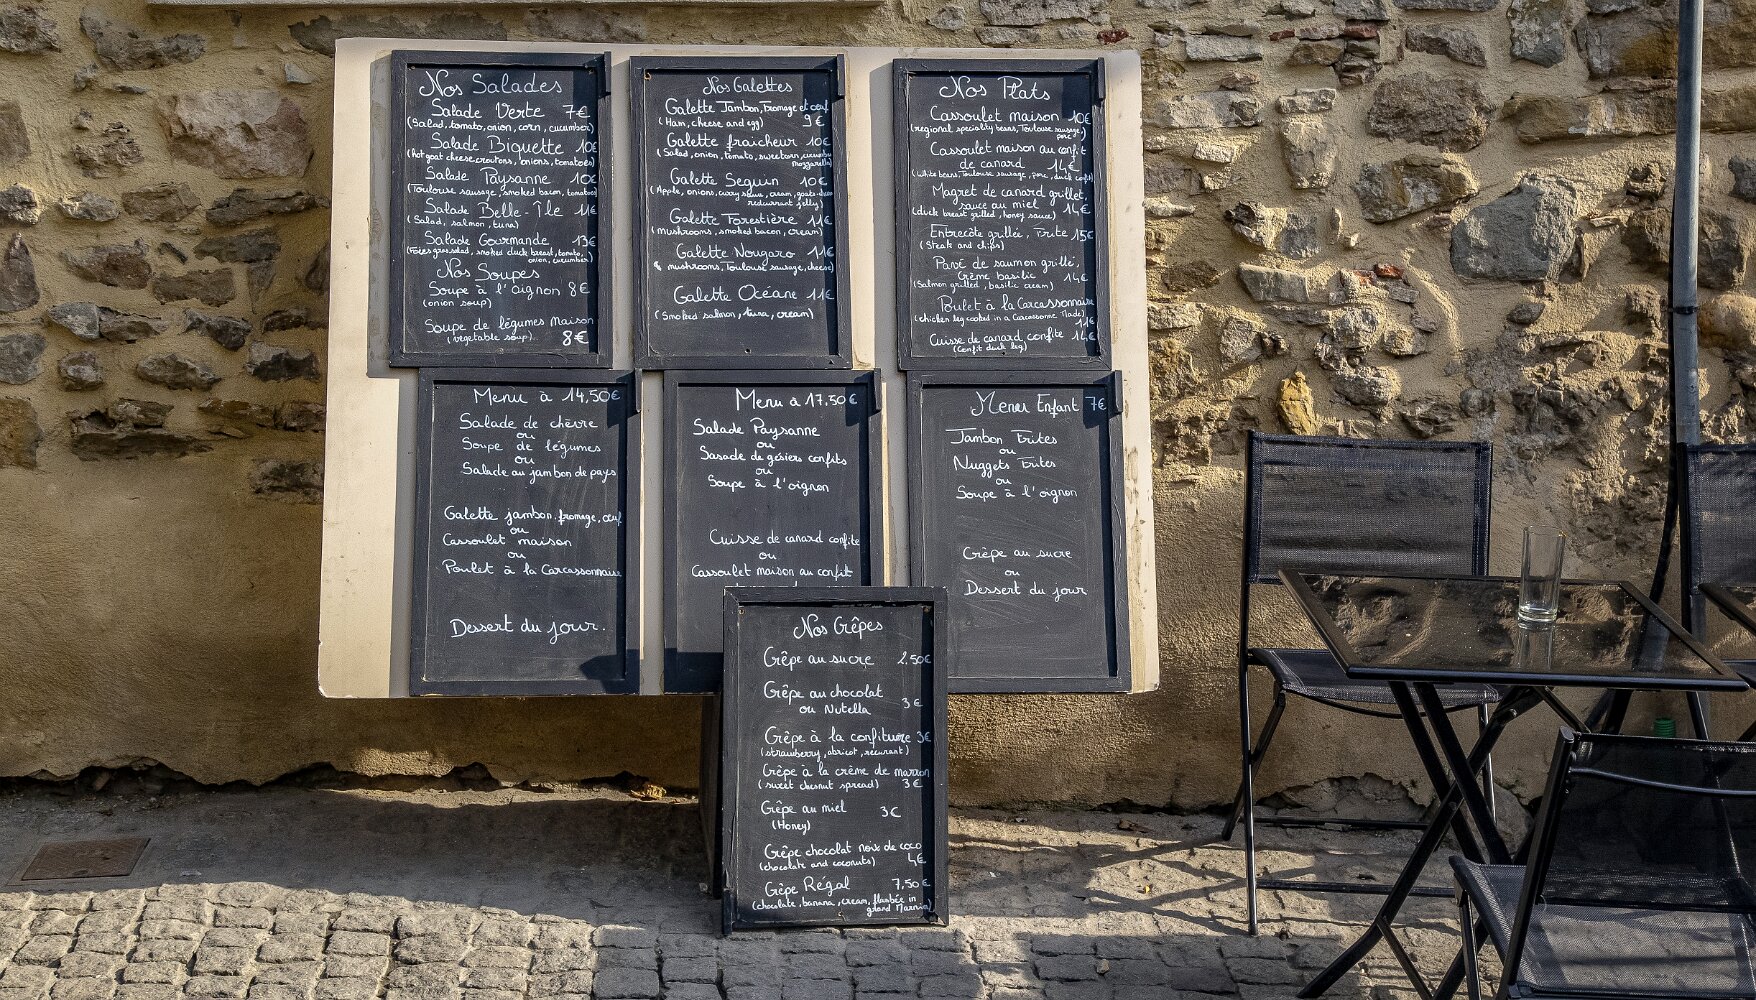 Nos Salades
Salade Verte 7€
(Salad, tomato, onion, corn, cucumber)
Salade Biquette 10€
(hot goat cheese, croutons, onions, tomatoes)
Salade Paysanne 10€
(Toulouse sausage, smoked bacon, tomatoes)
Salade Belle-Île 11€
(Salad, salmon, tuna)
Salade Gourmande 13€
smoked duck breast, tomato,
onion, cucumber)
Nos Soupes
Soupe à l'oignon 8€
(onion soup)
Soupe de légumes Maison
(vegetable soup) 8€
Nos Galettes
Galette Jambon, fromage et œuf
(Ham, cheese and egg) 9€
Galette fraicheur 10€
(Salad, onion, tomato, sweetcorn, cucumber
mozzarella)
Galette Seguin 10€
(Apple, onions, curry sauce, cream, goats cheese
redcurrant jelly)
Galette Forestière 11€
(mushrooms, smoked bacon, cream)
Galette Nougaro 11€
(mushrooms, Toulouse sausage, cheese)
Galette Océane 11€
(Smoked salmon, tuna, cream)
Nos Plats
Cassoulet maison 10€
(regional speciality beans, Toulouse sausage,
porc)
Cassoulet maison au confit
de canard 14€
(White beans, Toulouse sausage, porc, duck confit)
Magret de canard grillet,
sauce au miel 14€
(duck breast grilled, honey sauce)
Entrecôte grillée, Frite 15€
(Steak and chips)
Pavé de saumon grillé,
Crème basilic 14€
(Salmon grilled, basilic cream)
Poulet à la Carcassonnaise
(chicken leg cooked in a Carcassonne Made)
11€
Cuisse de canard confite 14€
(Confit duck leg)
Menu à 14,50€
Salade de chèvre
ou
Soupe de légumes
ou
Salade au jambon de pays
Galette jambon, fromage, œuf
ou
Cassoulet maison
ou
Poulet à la Carcassonnaise
Dessert du jour.
Menu à 17,50€
Salade Paysanne
ou
Sasade de gésiers confits
ou
Soupe à l'oignon
Cuisse de canard confite
ou
Cassoulet maison au confit
Menu Enfant 7€
Jambon Frites
ou
Nuggets Frites
ou
Soupe à l'oignon
Crèpe au sucre
ou
Dessert du jour
Nos Crêpes
Crêpe au sucre 2,50€
Crêpe au chocolat
ou Nutella 3€
Crêpe à la confiture 3€
(strawberry, abricot, recurant)
Crêpe à la crème de marron
(sweet chesnut spread) 3€
Crêpe au miel 3€
(Honey)
Crêpe chocolat noix de coco
(chocolate and coconuts) 4€
Crêpe Régal 7,50€
(chocolate, banana, cream, flambée in
grand Marnier)